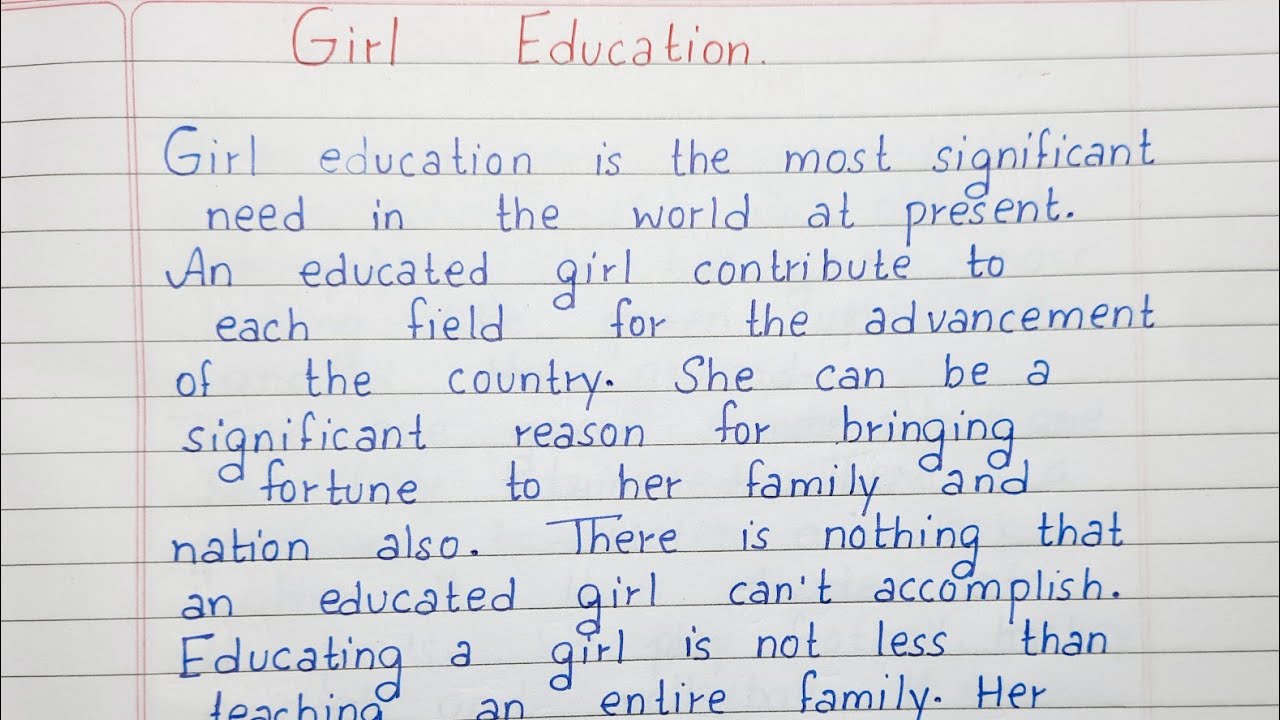 Girl Education.
Girl education is the most significant
need in the world at present.
An educated girl contribute to
each field for the advancement
of the country. She can be a
significant reason for bringing
fortune to her family and
nation also. There is nothing that
an educated girl can't accomplish.
Educating a girl is not less than
teaching an entire family. Her